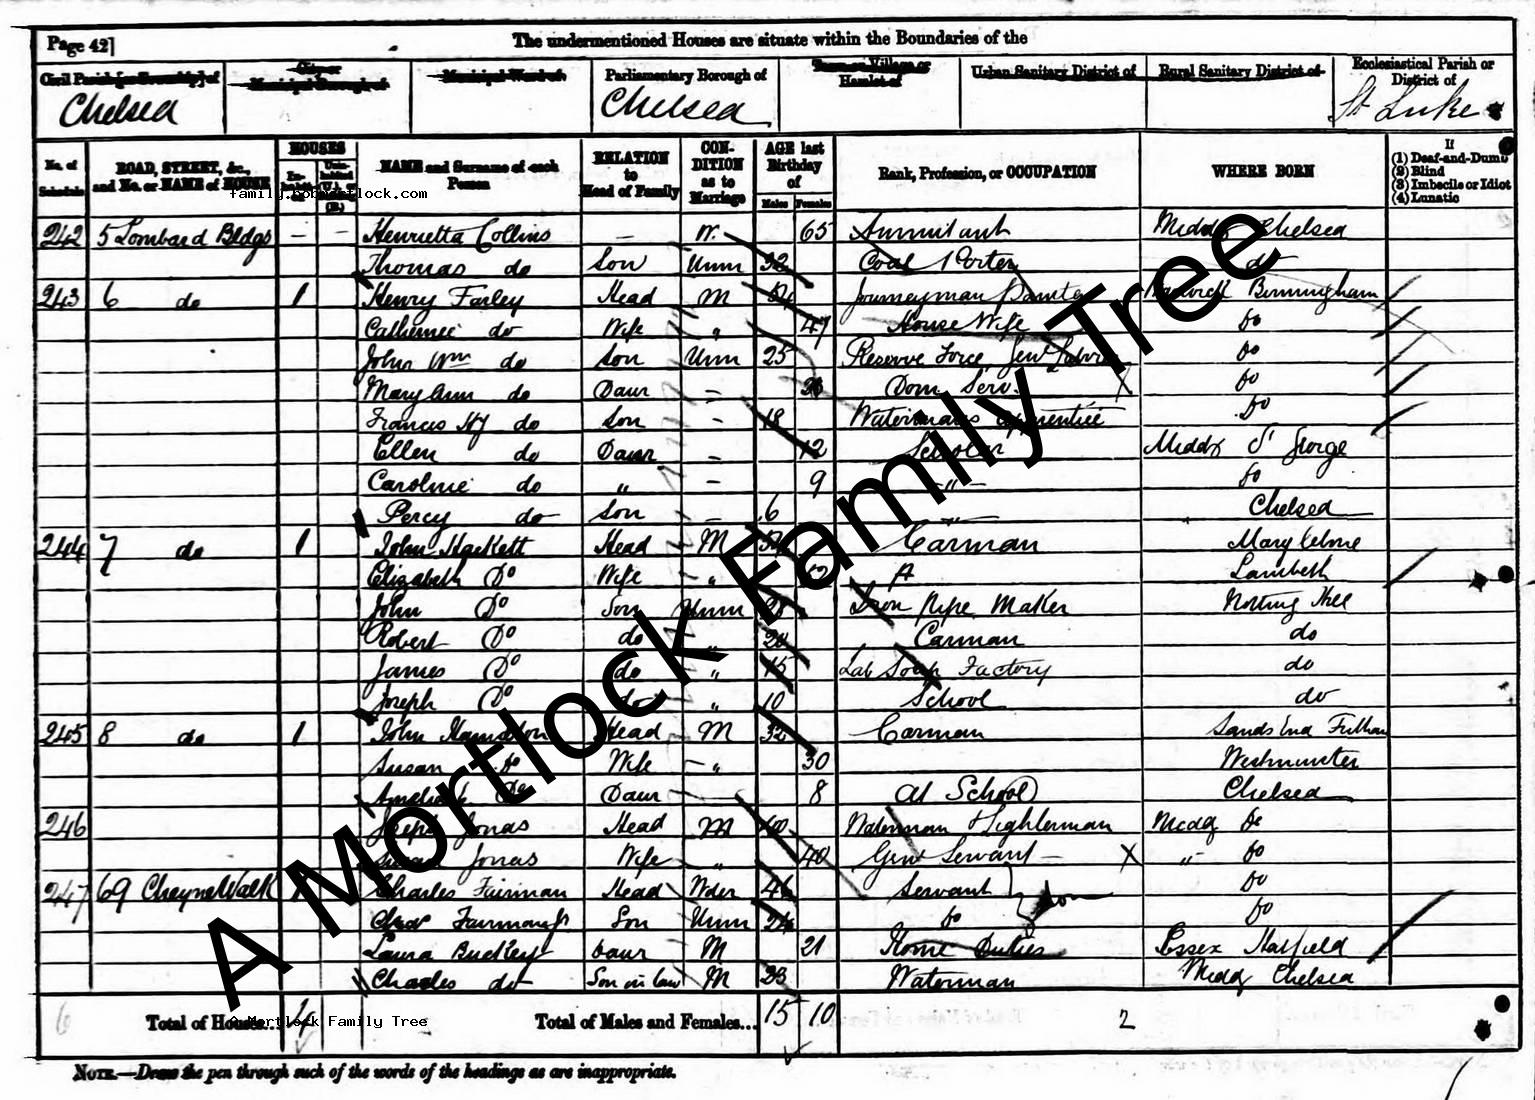 Page 42]
The undermentioned Houses are situate within the Boundaries of the
Civil Parish [or Township] of
City or Municipal Borough of
Municipal Ward of
Parliamentary Borough of
Town or Village or Hamlet of
Urban Sanitary District of
Rural Sanitary District of
Ecclesiastical Parish or District of
Chelsea Chelsea St Luke
No. of Schedule
ROAD, STREET, &c., and No. or NAME of HOUSE
HOUSES
NAME and Surname of each Person
RELATION to Head of Family
CONDITION as to Marriage
AGE last Birthday of
Males Females
Rank, Profession, or OCCUPATION
WHERE BORN
If
(1) Deaf-and-Dumb
(2) Blind
(3) Imbecile or Idiot
(4) Lunatic
242 5 Lombard Bldgs – – Henrietta Collins – W. 65 Annuitant Middx Chelsea
Thomas do Son Unm 32 Coal Porter do
243 6 do 1 Henry Farley Head M Journeyman Birmingham
Catherine do Wife " 47 House Wife Do
John Wm do Son Unm 25 Reserve Force Do
Mary Ann do Daur – Dom Serv. X Do
Francis Hy do Son – 18 Watermans Apprentice Do
Ellen do Daur – 12 Scholar Middx St George
Caroline do " – 9 –"– Do
Percy do Son – 6 –"– Chelsea
244 7 do 1 John Hackett Head M Carman Marylebone
Elizabeth Do Wife " Lambeth
John Do Son Unm Iron Pipe Maker Notting Hill
Robert Do do " 20 Carman do
James Do do " 15 Lab Soap Factory do
Joseph Do do " 10 School do
245 8 do 1 John Head M 32 Carman Sands End Fulham
Susan Do Wife " 30 Westminster
Do Daur 8 At School Chelsea
246 Joseph Jonas Head M 40 Waterman & Lighterman Middx Do
Susan Jonas Wife " 40 Genl Servant – X " Do
247 69 Cheyne Walk 1 Charles Fairman Head Wder 46 Servant Dom Do
Chas Fairman Jr Son Unm 24 Do Do
Laura Buckley Daur M 21 Home Duties Essex Hatfield
Charles do Son in law M 23 Waterman Middx Chelsea
6 Total of Houses... 4 Total of Males and Females... 15 10 2
NOTE.—Draw the pen through such of the words of the headings as are inappropriate.
A Mortlock Family Tree
family.bobmortlock.com
A Mortlock Family Tree